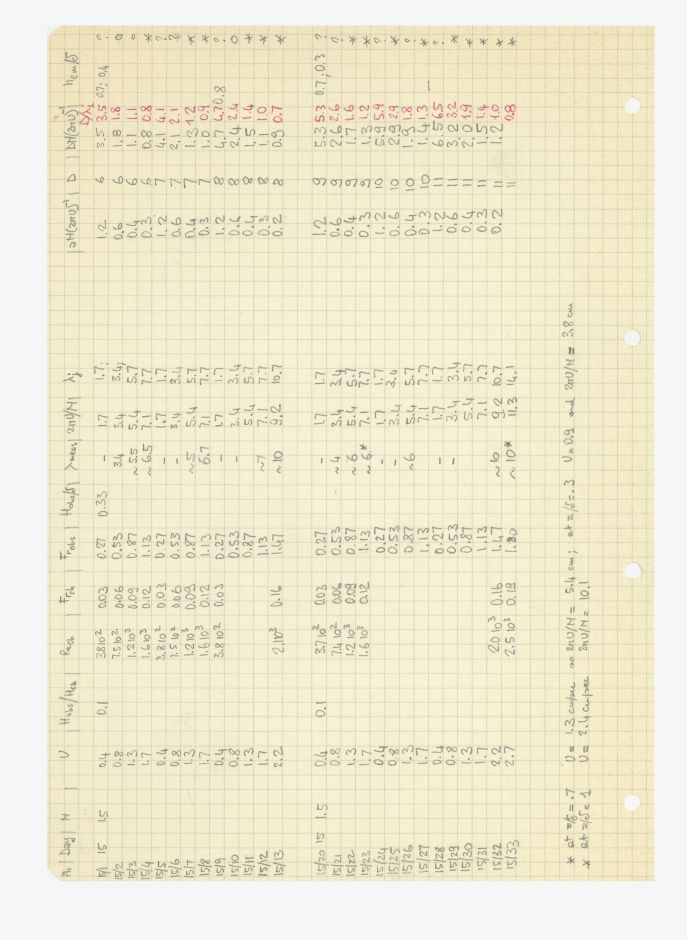 | Day | N | U | Hobs/Hch | Rech | Frch | Frobs | Hobs/δ | λmeas | 2πU/N | λi | aN(2πU)⁻¹ | D | DN(2πU)⁻¹ D/λi | hem/δ
15/1 15 1.5 0.4 0.1 3.8 10² 0.03 0.27 0.33 - 1.7 1.7; 1.2 6 3.5 3.5 0.7; 0.4
15/2 0.8 7.5 10² 0.06 0.53 3.4 3.4 3.4; 0.6 6 1.8 1.8 o
15/3 1.3 1.2 10³ 0.09 0.87 ~5.5 5.4 5.7 0.4 6 1.1 1.1 o
15/4 1.7 1.6 10³ 0.12 1.13 ~6.5 7.1 7.7 0.3 6 0.8 0.8 *
15/5 0.4 3.8 10² 0.03 0.27 - 1.7 1.7 1.2 7 4.1 4.1 o
15/6 0.8 7.5 10² 0.06 0.53 - 3.4 3.4 0.6 7 2.1 2.1 ?
15/7 1.3 1.2 10³ 0.09 0.87 ~5 5.4 5.7 0.4 7 1.3 1.2 *
15/8 1.7 1.6 10³ 0.12 1.13 6.7 7.1 7.7 0.3 7 1.0 0.9 *
15/9 0.4 3.8 10² 0.03 0.27 - 1.7 1.7 1.2 8 4.7 4.7 0.8
15/10 0.8 0.53 - 3.4 3.4 0.6 8 2.4 2.4 o
15/11 1.3 0.87 5.4 5.7 0.4 8 1.5 1.4 *
15/12 1.7 1.13 ~7 7.1 7.7 0.3 8 1.1 1.0 *
15/13 2.2 2.10³ 0.16 1.47 ~10 9.2 10.7 0.2 8 0.9 0.7 *
15/20 15 1.5 0.4 0.1 3.7 10² 0.03 0.27 - 1.7 1.7 1.2 9 5.3 5.3 0.7; 0.3
15/21 0.8 7.4 10² 0.06 0.53 ~4 3.4 3.4 0.6 9 2.6 2.6
15/22 1.3 1.2 10³ 0.09 0.87 ~6 5.4 5.7 0.4 9 1.7 1.6 *
15/23 1.7 1.6 10³ 0.12 1.13 ~6* 7.1 7.7 0.3 9 1.3 1.2 *
15/24 0.4 0.27 - 1.7 1.7 1.2 10 5.9 5.9
15/25 0.8 0.53 - 3.4 3.4 0.6 10 2.9 2.9
15/26 1.3 0.87 ~6 5.4 5.7 0.4 10 1.9 1.8 *
15/27 1.7 1.13 7.1 7.7 0.3 10 1.4 1.3 *
15/28 0.4 0.27 - 1.7 1.7 1.2 11 6.5 6.5
15/29 0.8 0.53 - 3.4 3.4 0.6 11 3.2 3.2 *
15/30 1.3 0.87 5.4 5.7 0.4 11 2.0 1.9 *
15/31 1.7 1.13 7.1 7.7 0.3 11 1.5 1.4 *
15/32 2.2 2.0 10³ 0.16 1.47 ~10 9.2 10.7 0.2 11 1.2 1.0 *
15/33 2.7 2.5 10³ 0.19 1.80 ~10* 11.3 14.1 11 0.8 *
* at z/δ = .7 U = 1.3 cm/sec so 2πU/N = 5.4 cm; at z/δ = .3 U = 0.9 and 2πU/N = 3.8 cm
* at z/δ = 1 U = 2.4 cm/sec 2πU/N = 10.1